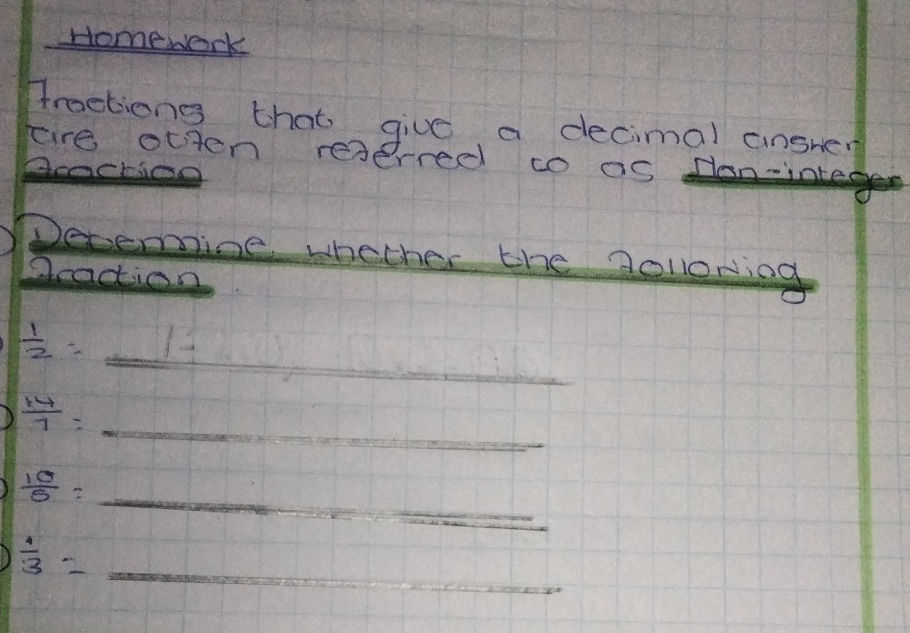 Homework
Fractions that give a decimal answer
are often referred to as Non-integer
fraction
Determine whether the following
fraction
1/2 =
14/7 =
10/5 =
1/3 =